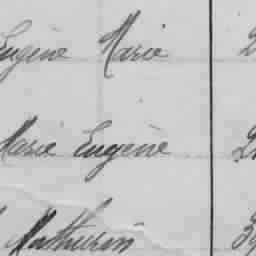 Eugène Marie 2
Marie Eugène 2
Mathurin 39